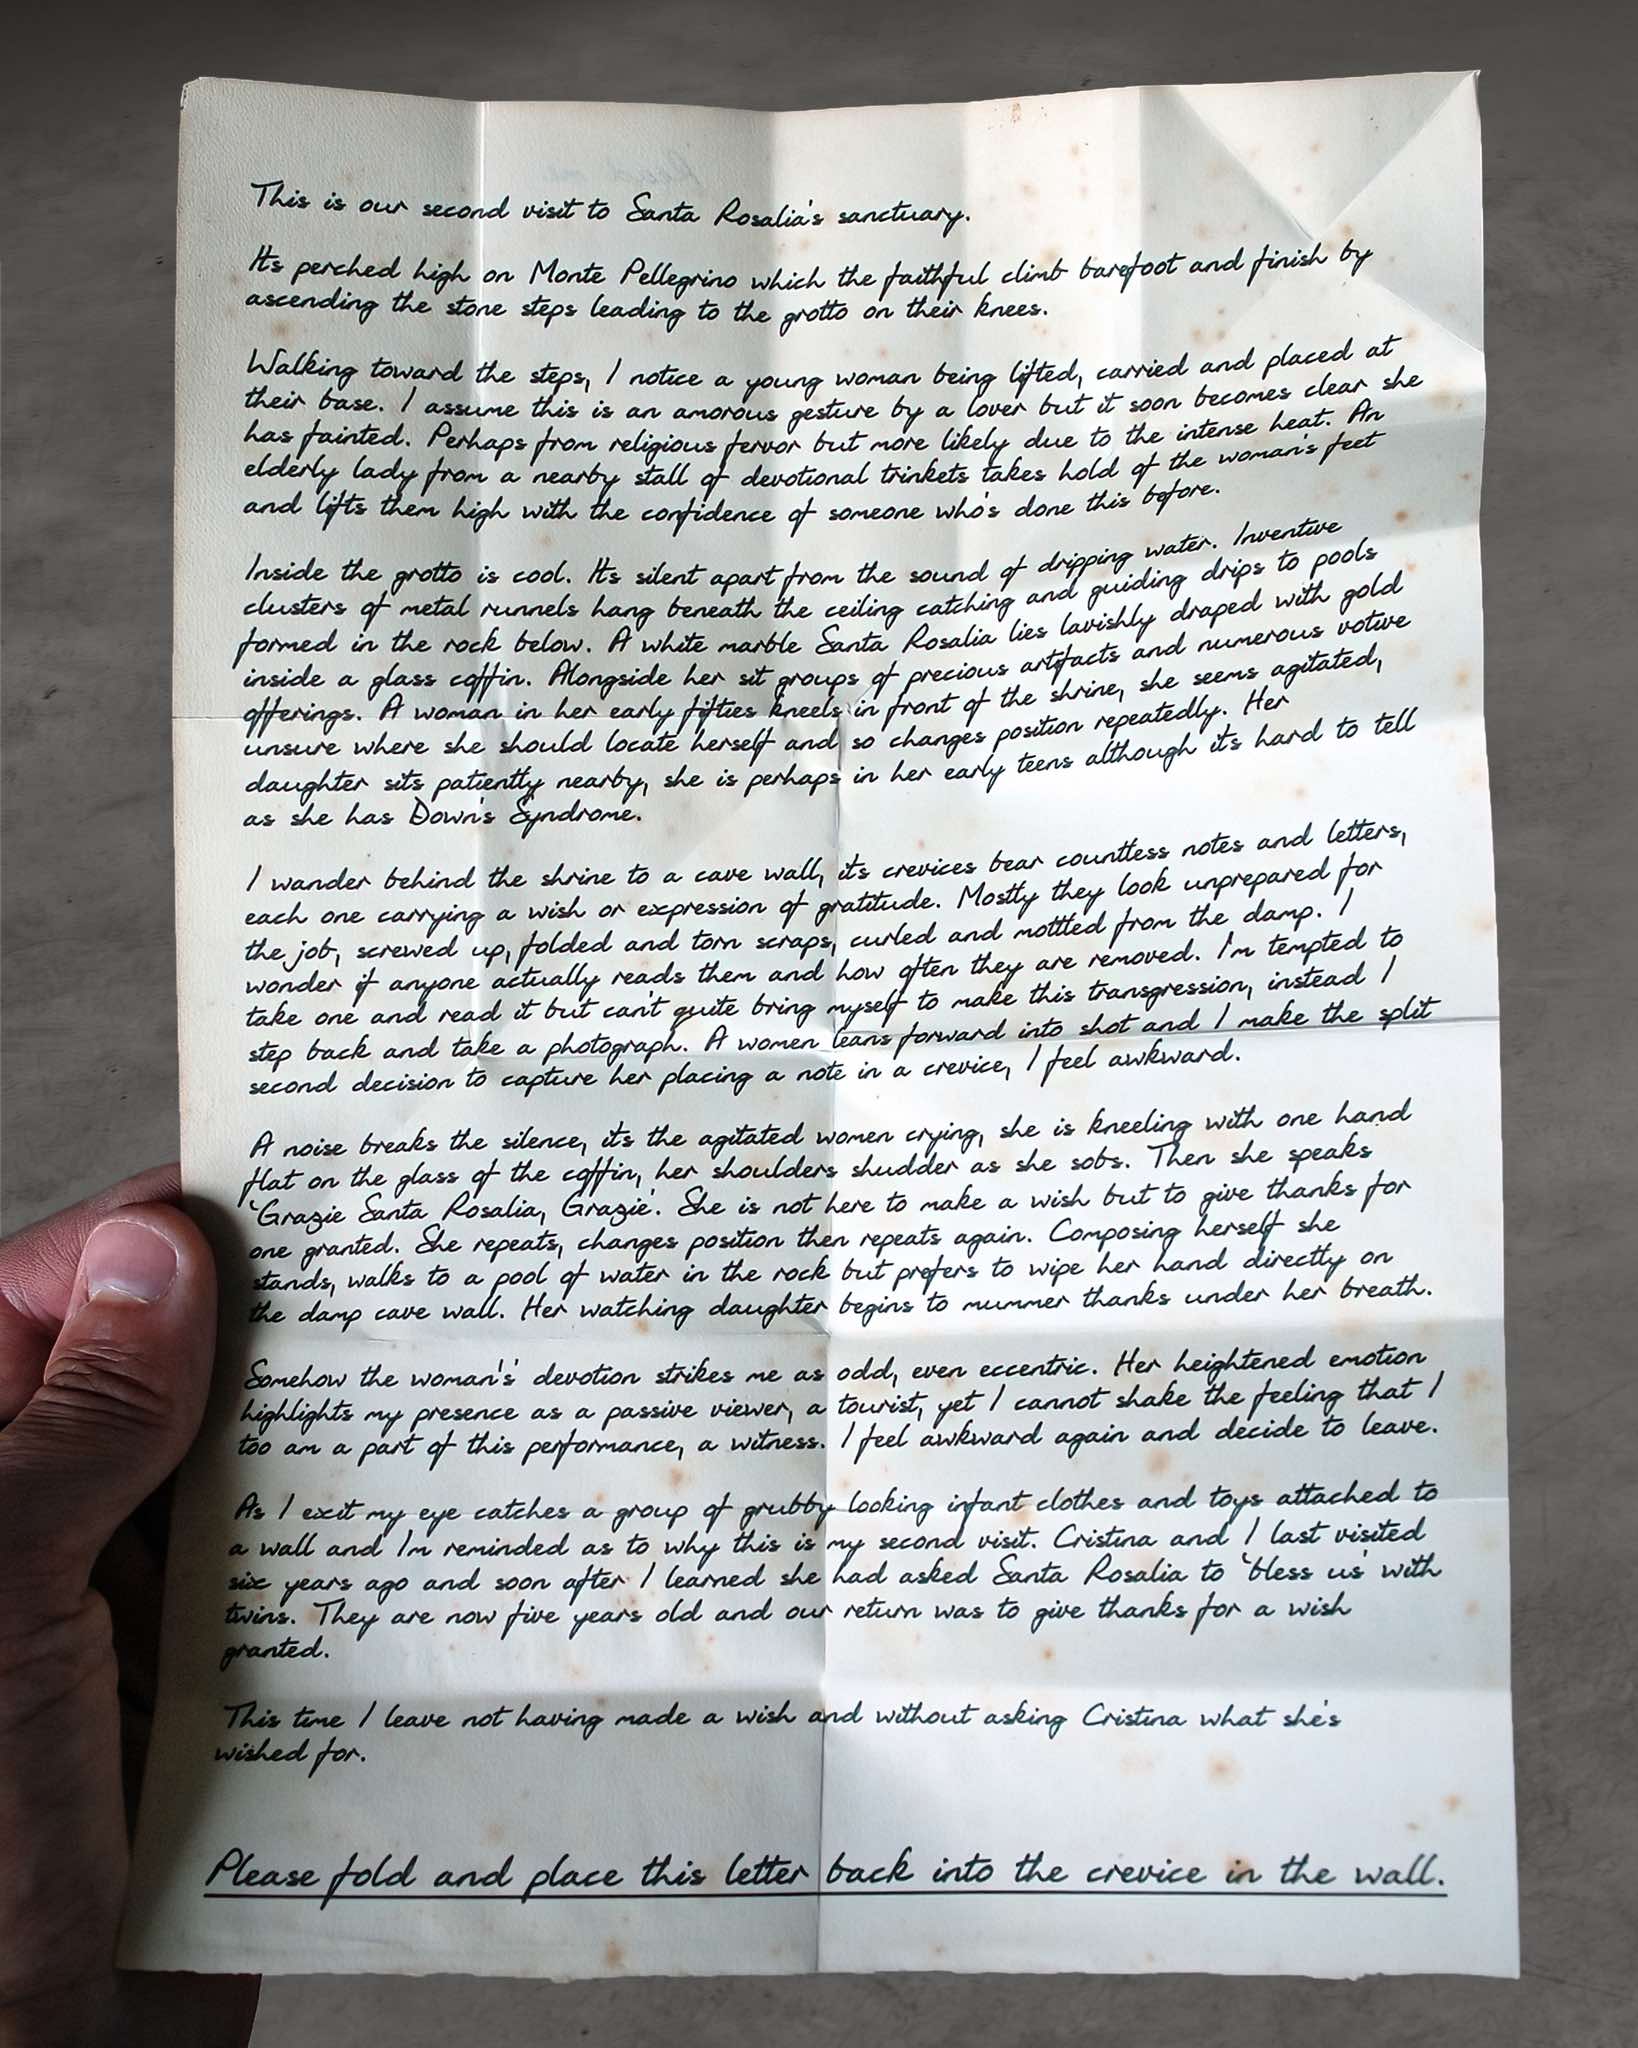 This is our second visit to Santa Rosalia's sanctuary.
Its perched high on Monte Pellegrino which the faithful climb barefoot and finish by
ascending the stone steps leading to the grotto on their knees.
Walking toward the steps, I notice a young woman being lifted, carried and placed at
their base. I assume this is an amorous gesture by a lover but it soon becomes clear she
has fainted. Perhaps from religious fervor but more likely due to the intense heat. An
elderly lady from a nearby stall of devotional trinkets takes hold of the woman's feet
and lifts them high with the confidence of someone who's done this before.
Inside the grotto is cool. Its silent apart from the sound of dripping water. Inventive
clusters of metal runnels hang beneath the ceiling catching and guiding drips to pools
formed in the rock below. A white marble Santa Rosalia lies lavishly draped with gold
inside a glass coffin. Alongside her sit groups of precious artifacts and numerous votive
offerings. A woman in her early fifties kneels in front of the shrine, she seems agitated,
unsure where she should locate herself and so changes position repeatedly. Her
daughter sits patiently nearby, she is perhaps in her early teens although its hard to tell
as she has Down's Syndrome.
I wander behind the shrine to a cave wall, its crevices bear countless notes and letters,
each one carrying a wish or expression of gratitude. Mostly they look unprepared for
the job, screwed up, folded and torn scraps, curled and mottled from the damp. I
wonder if anyone actually reads them and how often they are removed. I'm tempted to
take one and read it but can't quite bring myself to make this transgression, instead I
step back and take a photograph. A women leans forward into shot and I make the split
second decision to capture her placing a note in a crevice, I feel awkward.
A noise breaks the silence, its the agitated women crying, she is kneeling with one hand
flat on the glass of the coffin, her shoulders shudder as she sobs. Then she speaks
'Grazie Santa Rosalia, Grazie'. She is not here to make a wish but to give thanks for
one granted. She repeats, changes position then repeats again. Composing herself she
stands, walks to a pool of water in the rock but prefers to wipe her hand directly on
the damp cave wall. Her watching daughter begins to mummer thanks under her breath.
Somehow the woman's' devotion strikes me as odd, even eccentric. Her heightened emotion
highlights my presence as a passive viewer, a tourist, yet I cannot shake the feeling that I
too am a part of this performance, a witness. I feel awkward again and decide to leave.
As I exit my eye catches a group of grubby looking infant clothes and toys attached to
a wall and I'm reminded as to why this is my second visit. Cristina and I last visited
six years ago and soon after I learned she had asked Santa Rosalia to 'bless us' with
twins. They are now five years old and our return was to give thanks for a wish
granted.
This time I leave not having made a wish and without asking Cristina what she's
wished for.
Please fold and place this letter back into the crevice in the wall.